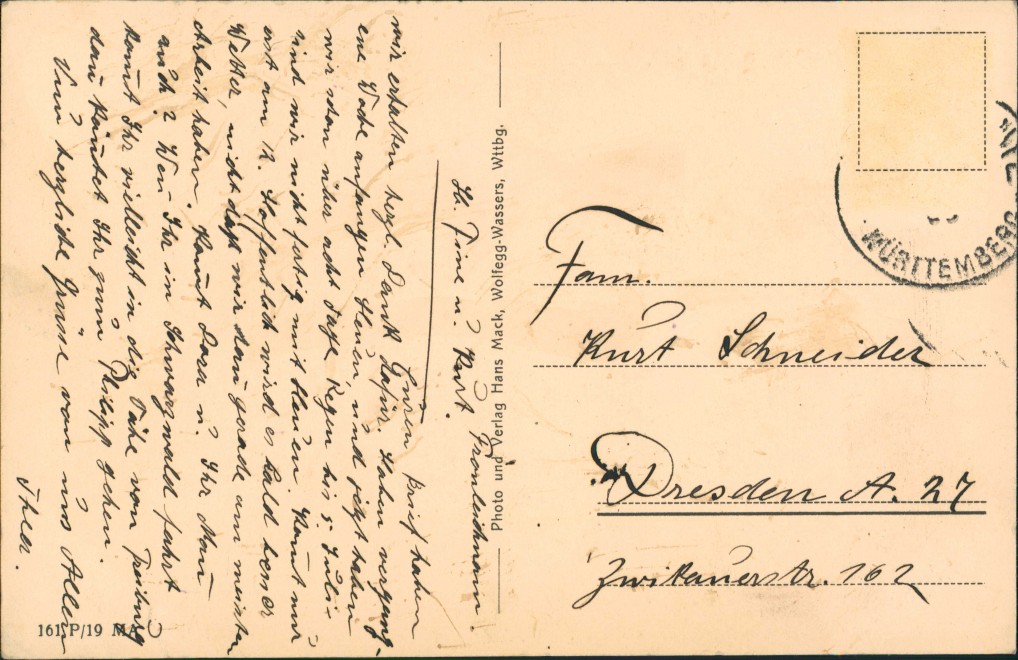 Fronleichnam!
Lb. Tine u. Kurt.
Euren Brief haben
wir erhalten herzl. Dank dafür. Haben vergang-
ene Woche anfangen Heuen, und jetzt haben
wir schon über acht Tage Regen bis 5. Juli
sind wir nicht fertig mit Heuen. Kommt nur
erst am 12. Hoffentlich wird es bald besser
Wetter, nicht daß wir dann gerade am meisten
Arbeit haben. Kommt u. Ihr Mann
auch? Wenn Ihr im Schwarzwald fahrt
kommt Ihr vielleicht in die Nähe von Freiburg
dann könntet Ihr zum Philipp gehen.
Nun herzliche Grüße von uns Allen
Photo und Verlag Hans Mack, Wolfegg-Wassers, Wttbg.
161 P/19 MA
WÜRTTEMBERG
Fam.
Kurt Schneider
Dresden A. 27
Zwikauerstr. 162